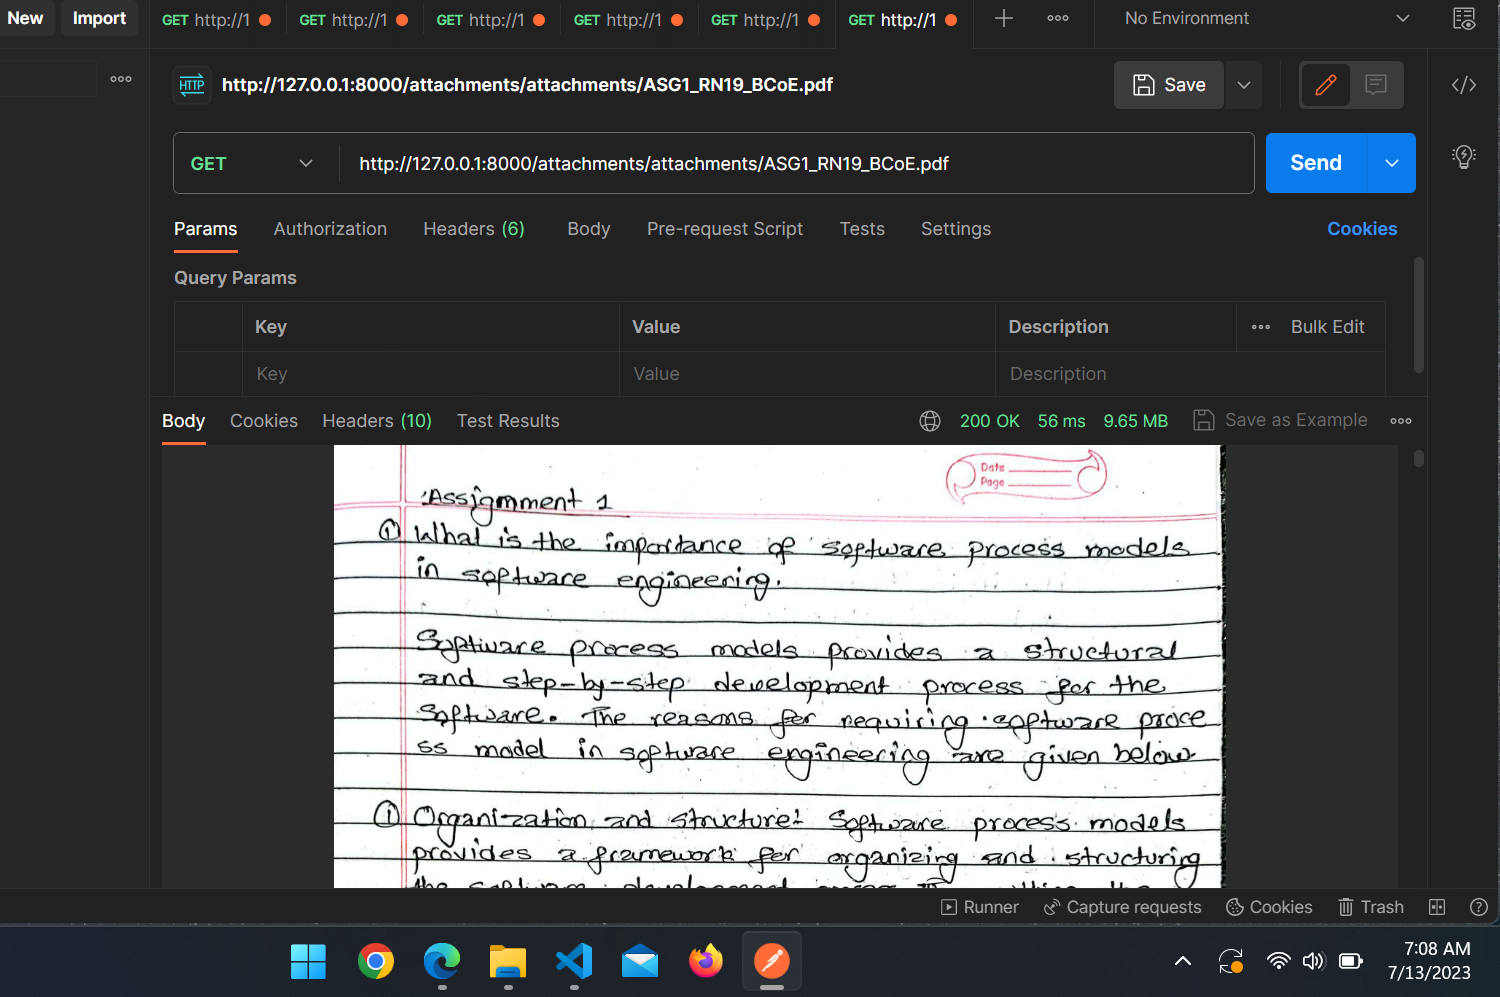 New Import GET http://1 GET http://1 GET http://1 GET http://1 GET http://1 GET http://1 No Environment
HTTP http://127.0.0.1:8000/attachments/attachments/ASG1_RN19_BCoE.pdf Save
GET http://127.0.0.1:8000/attachments/attachments/ASG1_RN19_BCoE.pdf Send
Params Authorization Headers (6) Body Pre-request Script Tests Settings Cookies
Query Params
Key Value Description Bulk Edit
Key Value Description
Body Cookies Headers (10) Test Results 200 OK 56 ms 9.65 MB Save as Example
Date
Page
Assignment 1
① What is the importance of software process models
in software engineering.
Software process models provides a structural
and step-by-step development process for the
software. The reasons for requiring software proce
ss model in software engineering are given below
① Organization and structure: Software process models
provides a framework for organizing and structuring
the software development
Runner Capture requests Cookies Trash
7:08 AM
7/13/2023